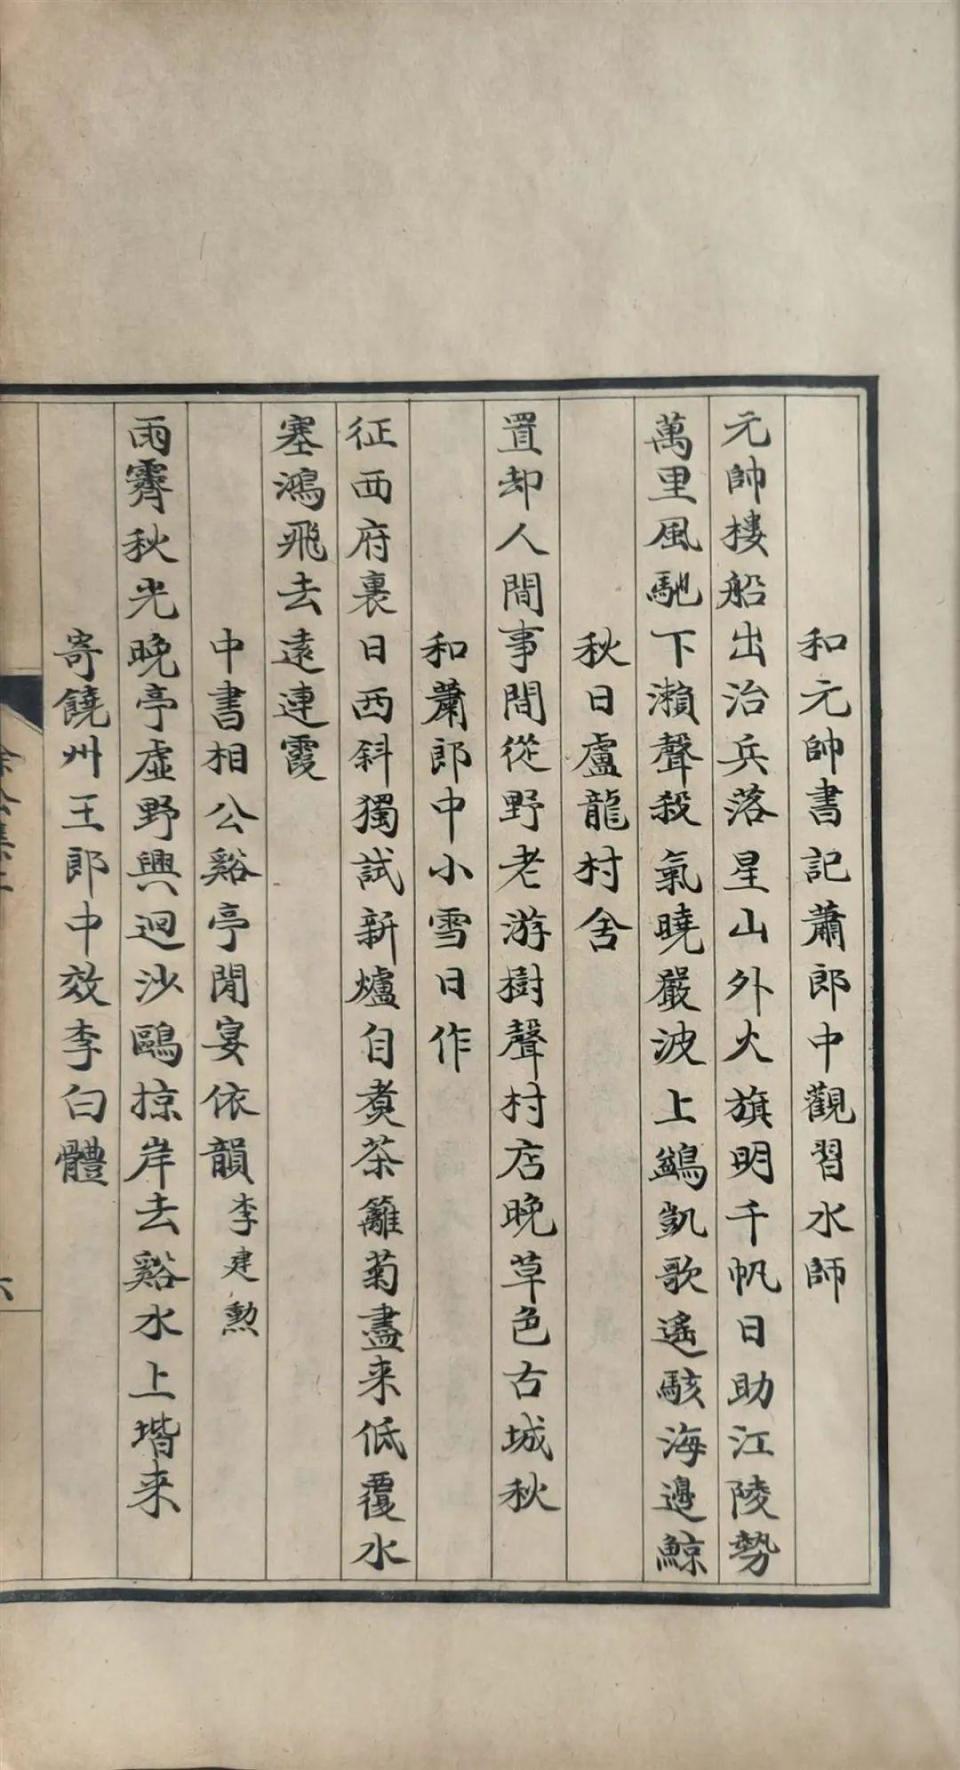 和元帥書記蕭郎中觀習水師
元帥樓船出治兵落星山外火旗明千帆日助江陵勢
萬里風馳下瀨聲殺氣曉嚴波上鷁凱歌遙駭海邊鯨
秋日盧龍村舍
置却人間事間從野老游樹聲村店晚草色古城秋
和蕭郎中小雪日作
征西府裏日西斜獨試新爐自煑茶籬菊盡来低覆水
塞鴻飛去遠連霞
中書相公谿亭閒宴依韻李建勲
雨霽秋光晚亭虛野興迴沙鷗掠岸去谿水上堦来
寄饒州王郎中效李白體